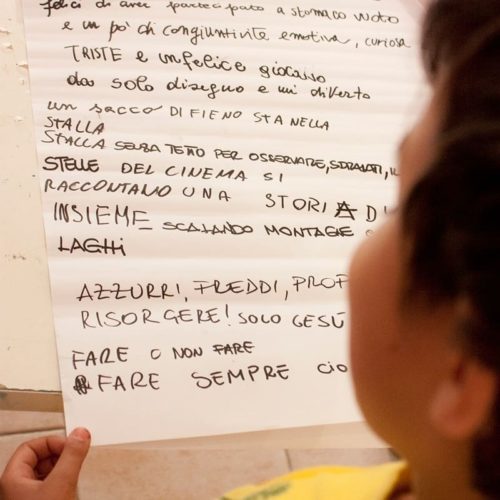 felici di aver partecipato a stomaco vuoto
e un pò di congiuntivite emotiva, curiosa
TRISTE e infelice giocavo
da solo disegno e mi diverto
un sacco DI FIENO STA NELLA
STALLA
STALLA SENZA TETTO PER OSSERVARE, SDRAIATI, IL
STELLE DEL CINEMA SI
RACCONTANO UNA STORIA DI
INSIEME SCALANDO MONTAGNE
LAGHI
AZZURRI, FREDDI, PROF
RISORGERE! SOLO GESÚ
FARE O NON FARE
FARE SEMPRE CIO